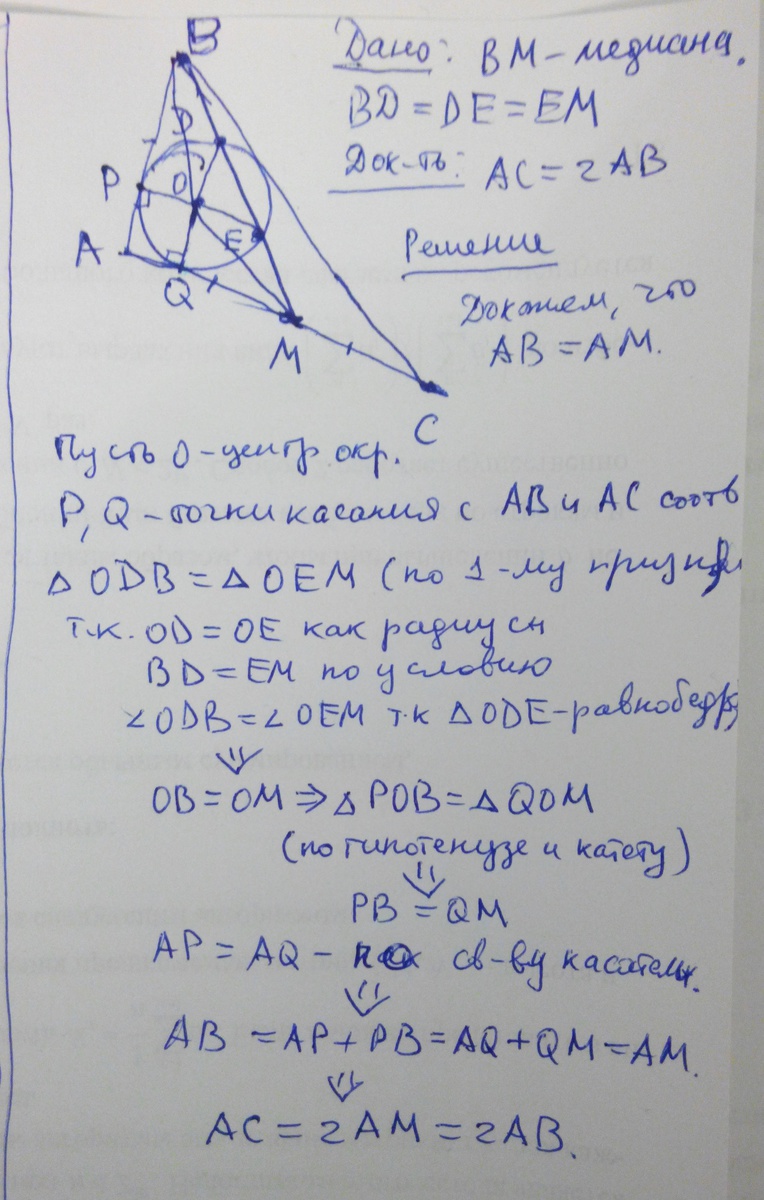 B
D
P
O
A
E
Q
M
C
Дано: BM – медиана.
BD = DE = EM
Док-ть: AC = 2AB
Решение
Докажем, что
AB = AM.
Пусть O – центр окр.
P, Q точки касания с AB и AC соотв
△ ODB = △ OEM (по 1-му
т.к. OD = OE как радиусы
BD = EM по условию
∠ODB = ∠OEM т.к △ODE – равнобедр
⇓
OB = OM ⇒ △ POB = △ QOM
(по гипотенузе и катету)
⇓
PB = QM
AP = AQ – по св-ву касательн.
⇓
AB = AP + PB = AQ + QM = AM.
⇓
AC = 2AM = 2AB.